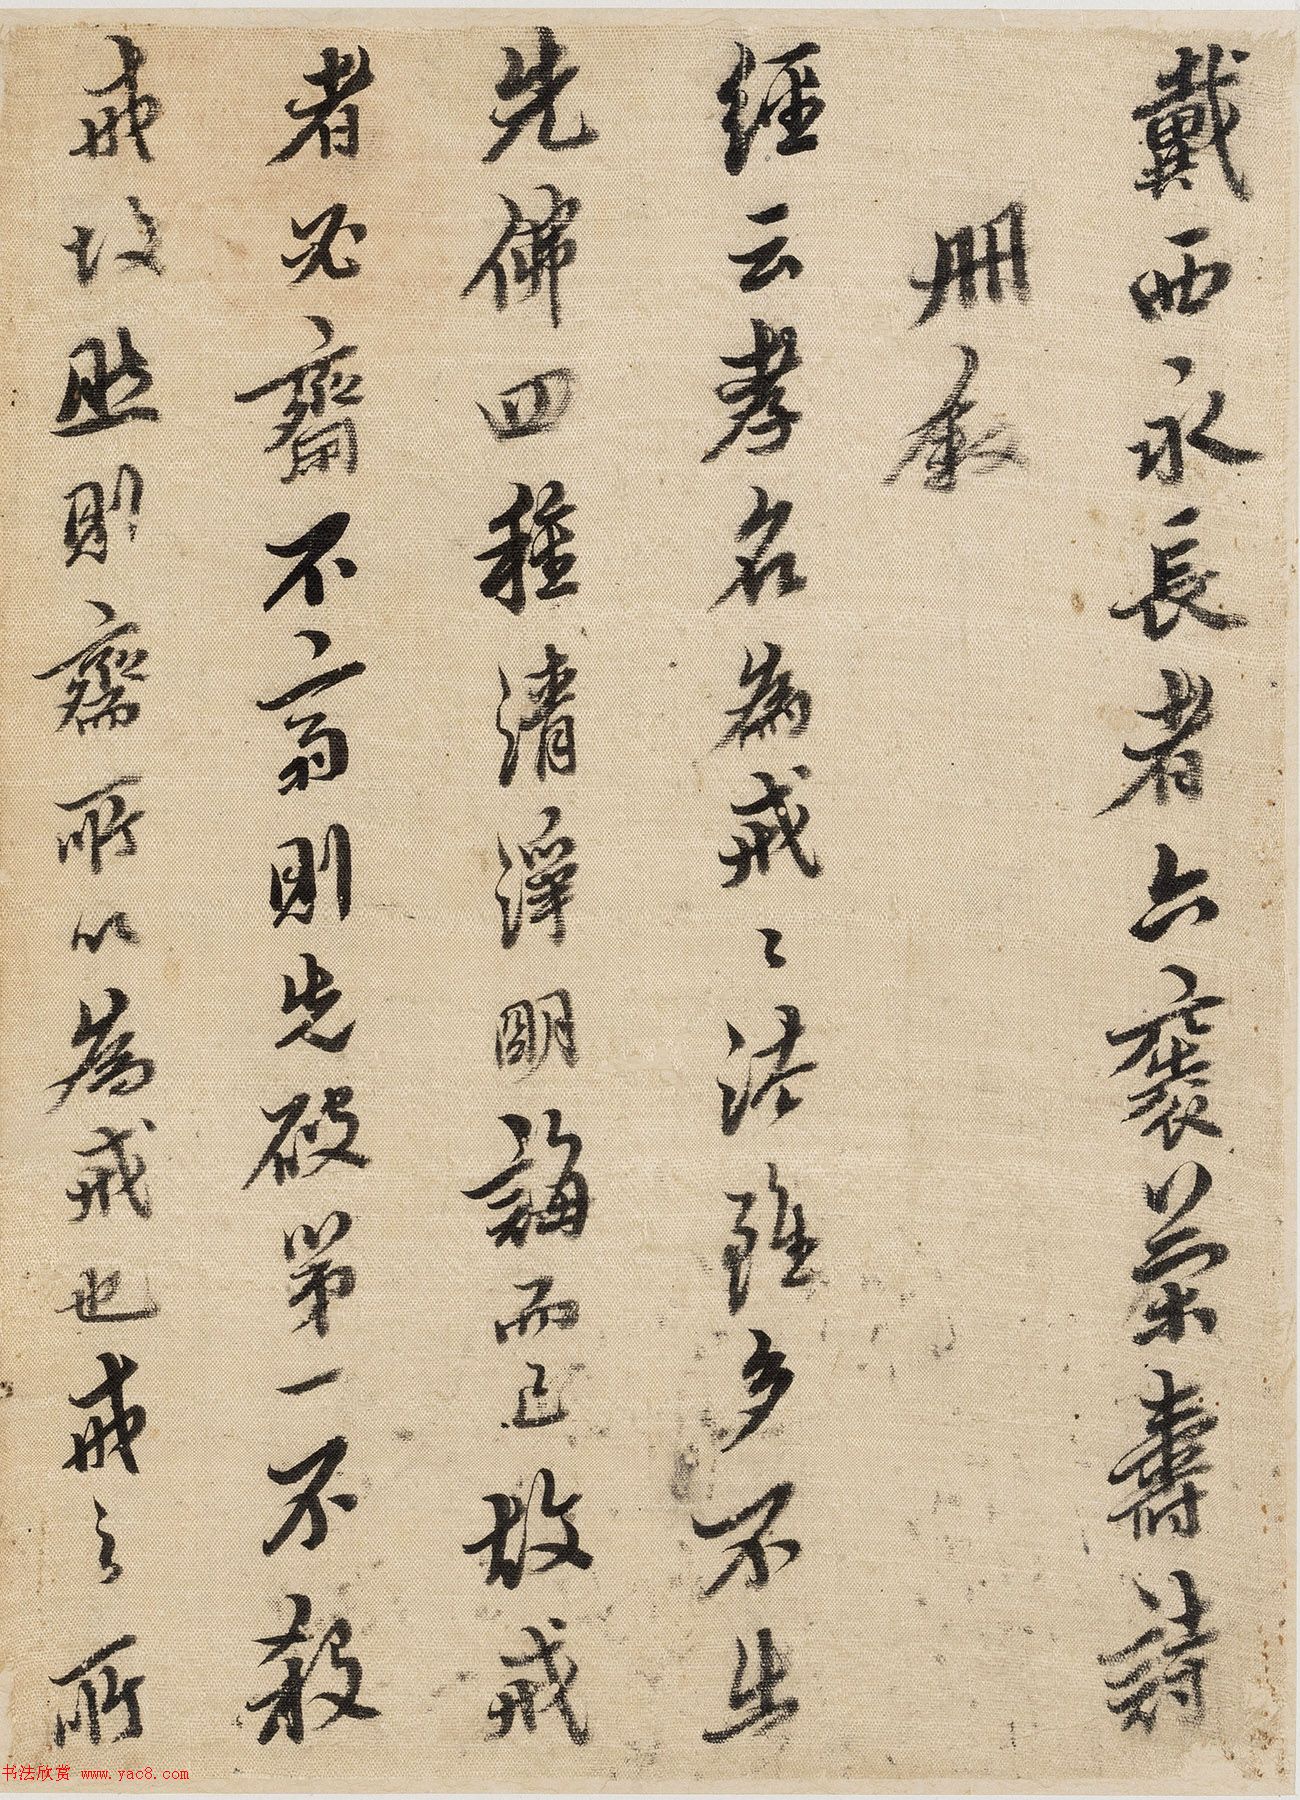 戴西永長者六袠榮壽詩
冊敘
經云孝名為戒〻法雖多不出
先佛四種清淨明誨而已故戒
者必齋不齋則先破第一不殺
戒故然則齋所以為戒也戒之所
书法欣赏 www.yac8.com